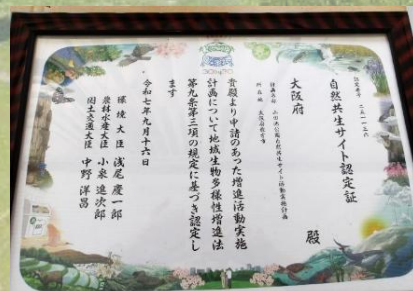 自然共生サイト認定証
大阪府
殿
貴殿より申請のあった増進活動実施
計画について地域生物多様性増進法
第九条第三項の規定に基づき認定し
ます
令和七年九月十六日
環境大臣 浅尾慶一郎
農林水産大臣 小泉進次郎
国土交通大臣 中野洋昌